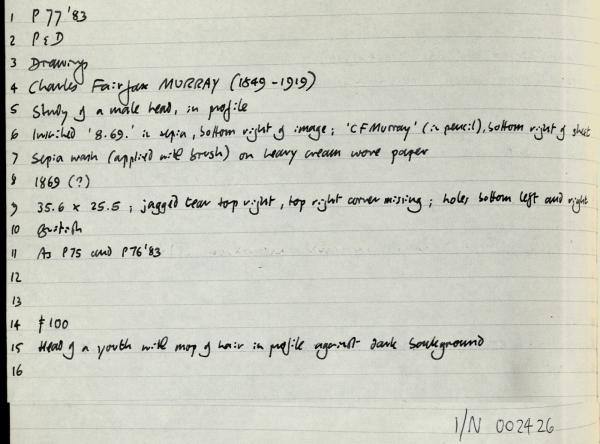 1 P 77 '83
2 P & D
3 Drawings
4 Charles Fairfax MURRAY (1849-1919)
5 Study of a male head, in profile
6 Inscribed '8.69.' in sepia, bottom right of image; 'CFMurray' (in pencil), bottom right of sheet
7 Sepia wash (applied with brush) on heavy cream wove paper
8 1869 (?)
9 35.6 x 25.5; jagged tear top right, top right corner missing; holes bottom left and right
10 British
11 As P75 and P76'83
12
13
14 £100
15 Head of a youth with mop of hair in profile against dark background
16
I/N 002426